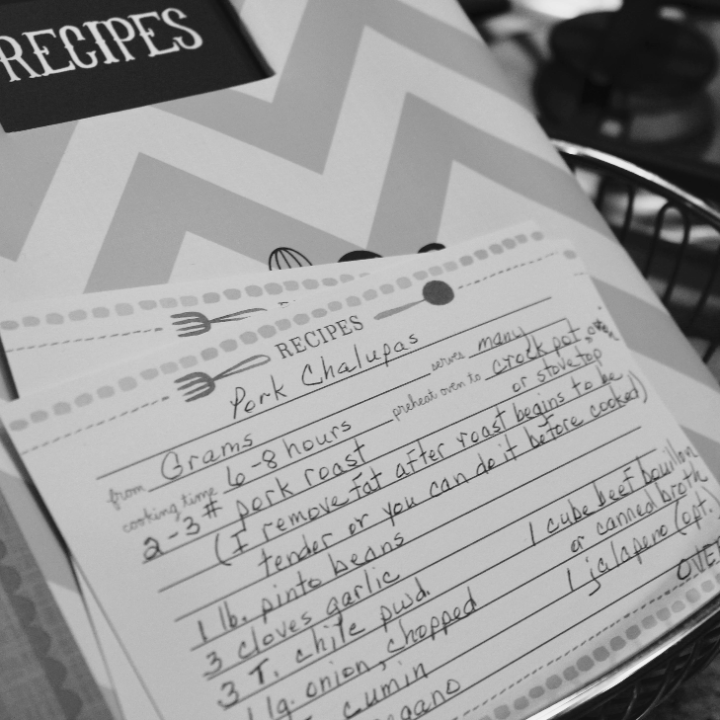 RECIPES
RECIPES
Pork Chalupas
from Grams serves many
cooking time 6-8 hours preheat oven to crock pot
or stovetop
2-3# pork roast
(I remove fat after roast begins to be
tender or you can do it before cooked)
1 lb. pinto beans 1 cube beef bouillon
3 cloves garlic or canned broth
3 T. chile pwd. 1 jalapeno (opt.)
1 lg. onion, chopped OVER
cumin